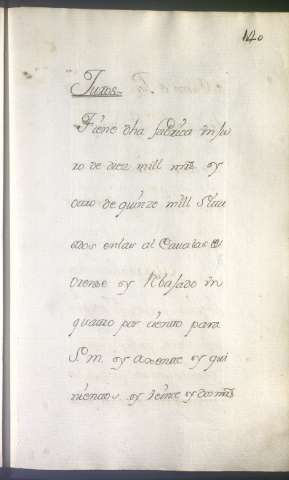 140
Juros
Tiene dha fabrica un ju
ro de diez mill mrs y
otro de quinze mill situa
dos en las al Caualas
de y Rebajado un
quatro por ciento para
S.M. y
nientos y Veinte y dos mrs